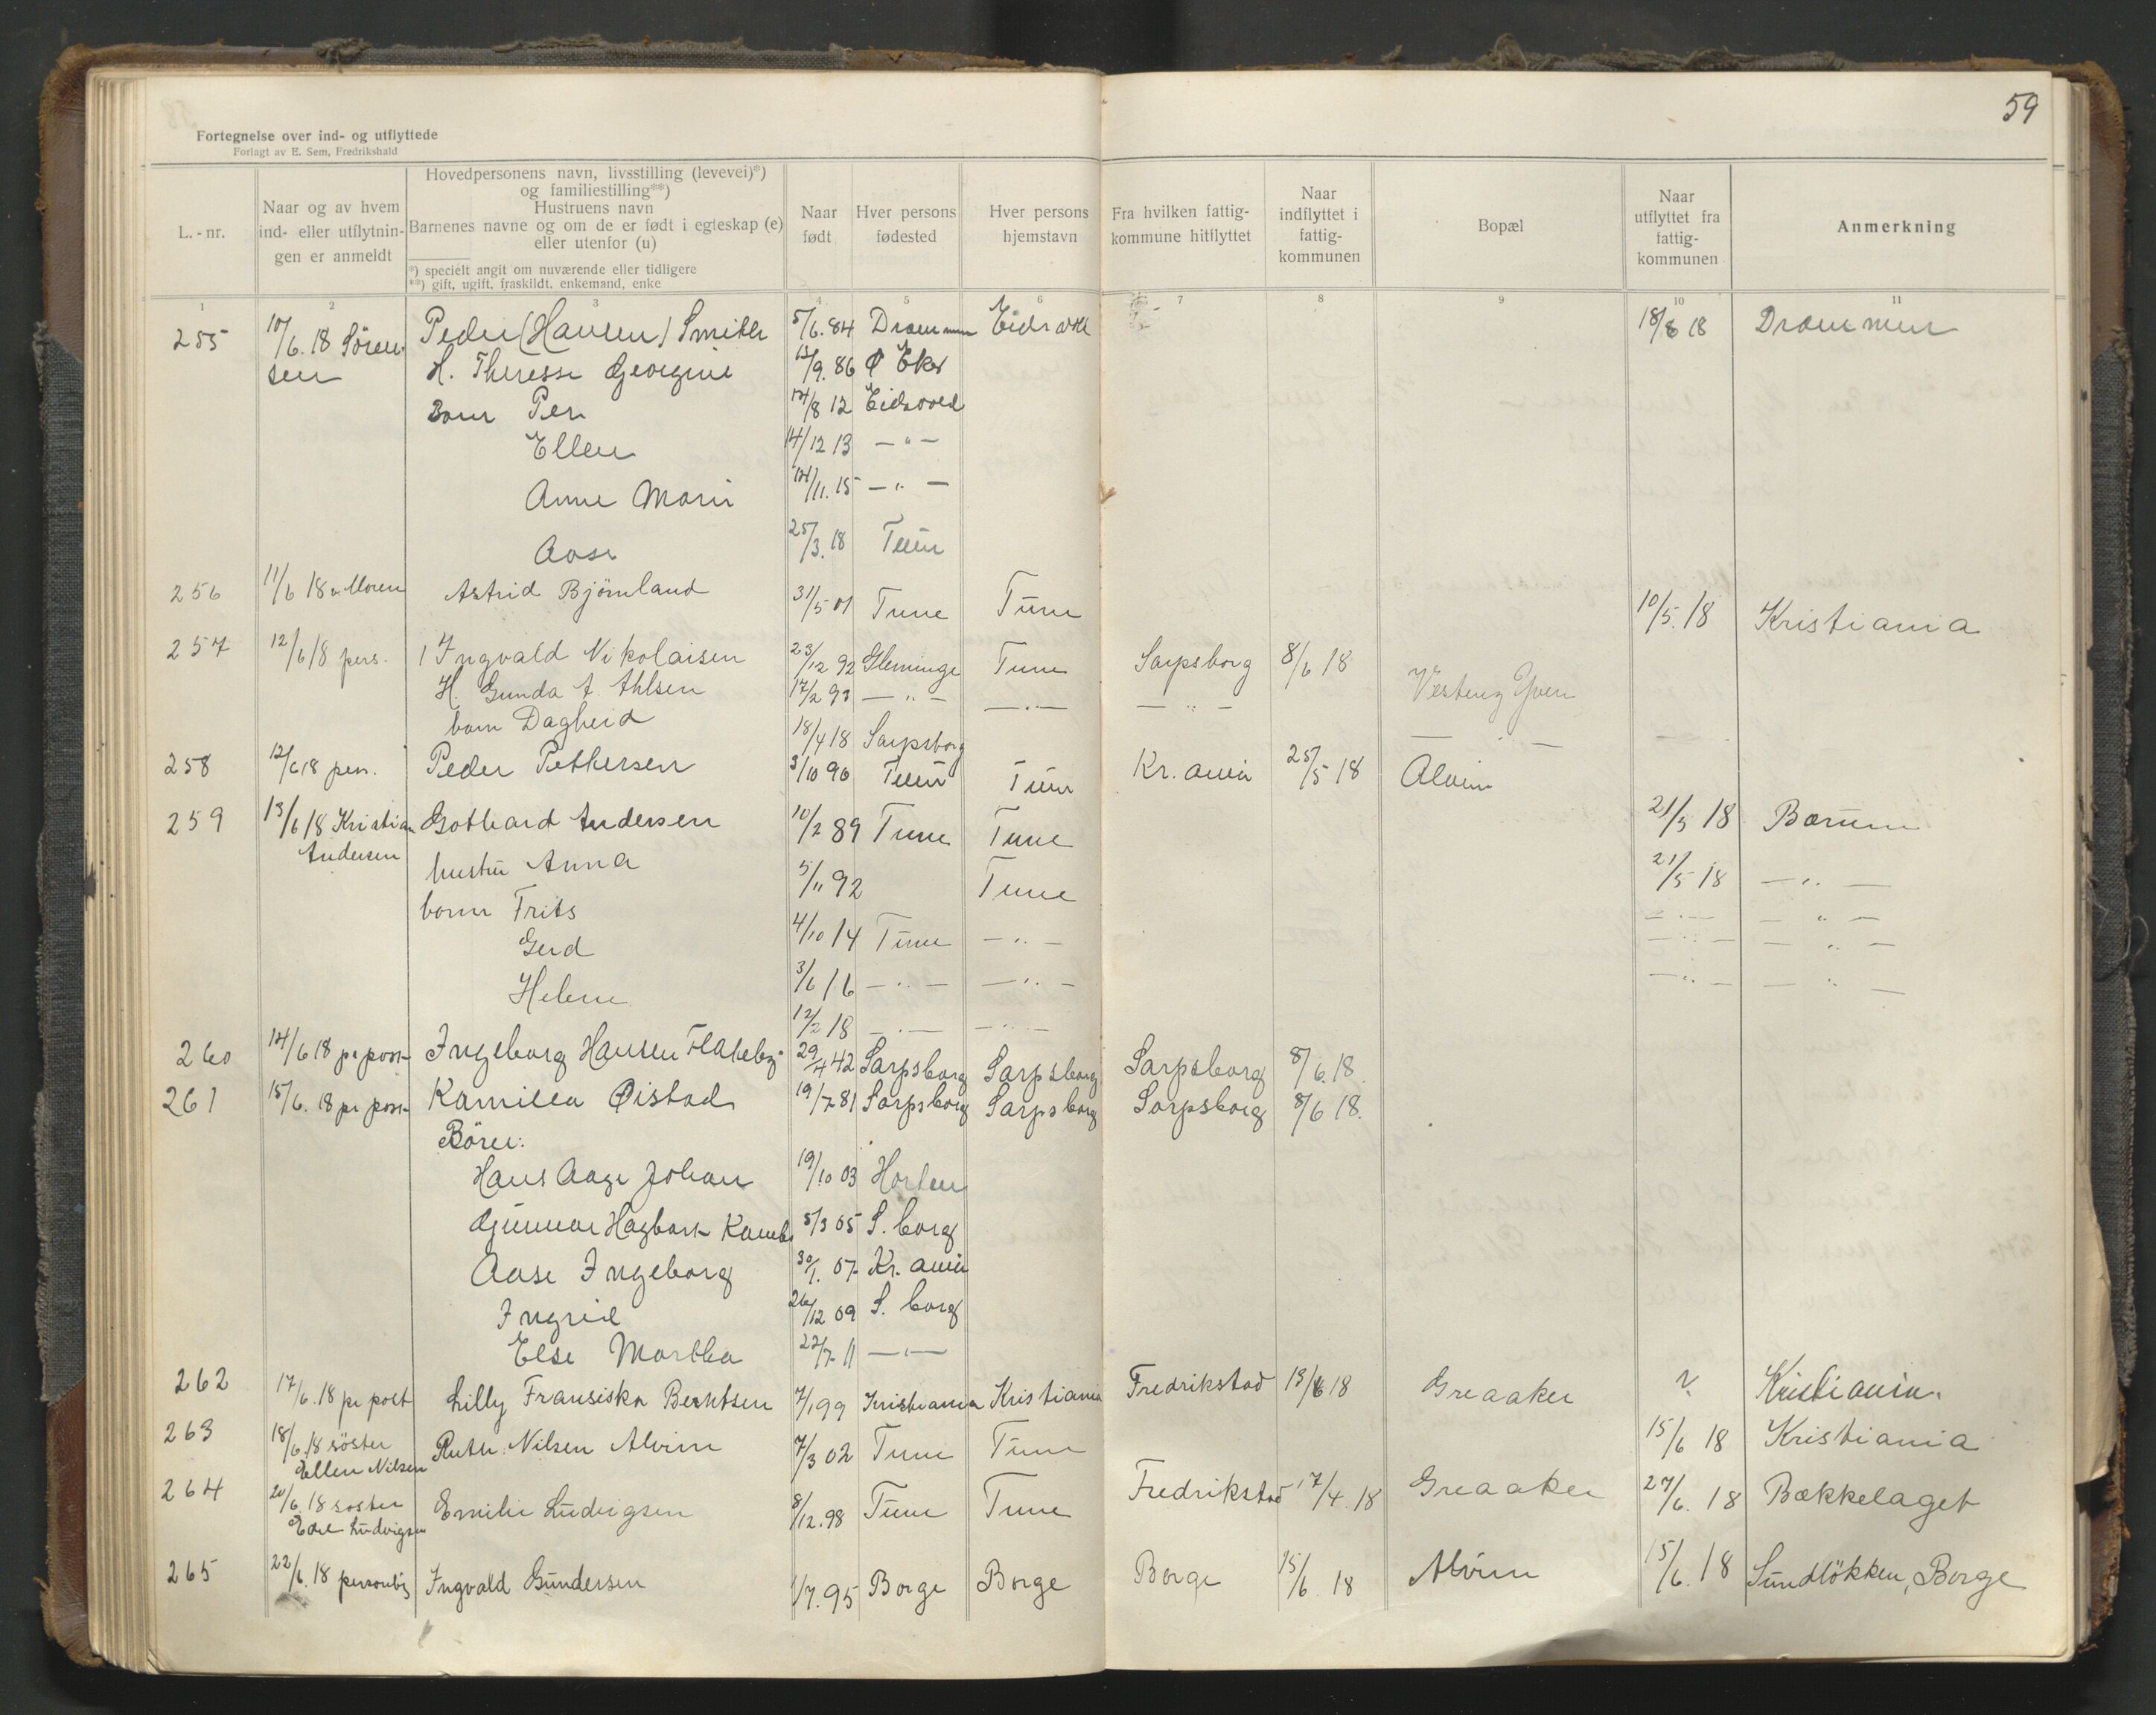 59
Fortegnelse over ind- og utflyttede
Forlagt av E. Sem, Fredrikshald
L.-nr.
Naar og av hvem ind- eller utflytnin-gen er anmeldt
Hovedpersonens navn, livsstilling (levevei)*)
og familiestilling**)
Hustruens navn
Barnenes navne og om de er født i egteskap (e)
eller utenfor (u)
*) specielt angit om nuværende eller tidligere
**) gift, ugift, fraskildt, enkemand, enke
Naar født
Hver persons fødested
Hver persons hjemstavn
Fra hvilken fattig-kommune hitflyttet
Naar indflyttet i fattig-kommunen
Bopæl
Naar utflyttet fra fattig-kommunen
Anmerkning
1 2 3 4 5 6 7 8 9 10 11
255 10/6.18 Sören- Peder (Hansen) 5/6.84 Drammen Eidsvold 18/6 18 Drammen
sen H. Therese Georgine 12/9.86 Ø Eker
Barn Per 14/8 12 Eidsvold
Ellen 14/12 13 — " —
Anne Marie 14/11.15 — " —
Aase 25/3.18 Tune
256 11/6 18 Moren Astrid Bjørnland 31/5 01 Tune Tune 10/5.18 Kristiania
257 12/6 18 pers. Ingvald Nikolaisen 23/12 92 Glemminge Tune Sarpsborg 8/6 18
H. Gunda A. Ahlsen 17/2 93 — " — — " — — " — Vesteng Yven
barn Dagheid 18/4 18 Sarpsborg — " —
258 12/6 18 pers. Peder Pettersen 3/10 96 Tune Tune Kr.ania 25/5 18 Alvim
259 13/6 18 Kristian Gothard Andersen 10/2 89 Tune Tune 21/5 18 Bærum
Andersen hustru Anna 5/11 92 Tune 21/5 18 — " —
barn Frits 4/10 14 Tune — " — — " — — " —
Gerd 3/6 16 — " — — " — — " — — " —
Helene 12/2 18 — " — — " — — " — — " —
260 14/6 18 pr post Ingeborg Hansen 29/4 42 Sarpsborg Sarpsborg Sarpsborg 8/6.18.
261 15/6.18 pr post Kamilla Øistad 19/7 81 Sarpsborg Sarpsborg Sarpsborg 8/6 18.
Børn:
Hans Aage Johan 19/10 03 Horten
Gunnar Hagbart 5/3 05 S.borg
Aase Ingeborg 30/1. 07 Kr.ania
Ingrid 26/12 09 S.borg
Else Martha 22/7 11 — " —
262 17/6.18 pr post Lilly Fransiska Berntsen 7/1 99 Kristiania Kristiania Fredrikstad 13/6 18 Greaaker ? Kristiania.
263 18/6.18 söster Ruth Nilsen Alvim 7/3 02 Tune Tune 15/6 18 Kristiania
Ellen Nilsen
264 20/6.18 söster Emilie Ludvigsen 8/12.98 Tune Tune Fredrikstad 17/4.18 Greaaker 27/6.18 Bækkelaget
Edel Ludvigsen
265 22/6.18 personlig Ingvald Gundersen 1/7.95 Borge Borge Borge 15/6.18 Alvim 15/6.18 Sundløkken, Borge